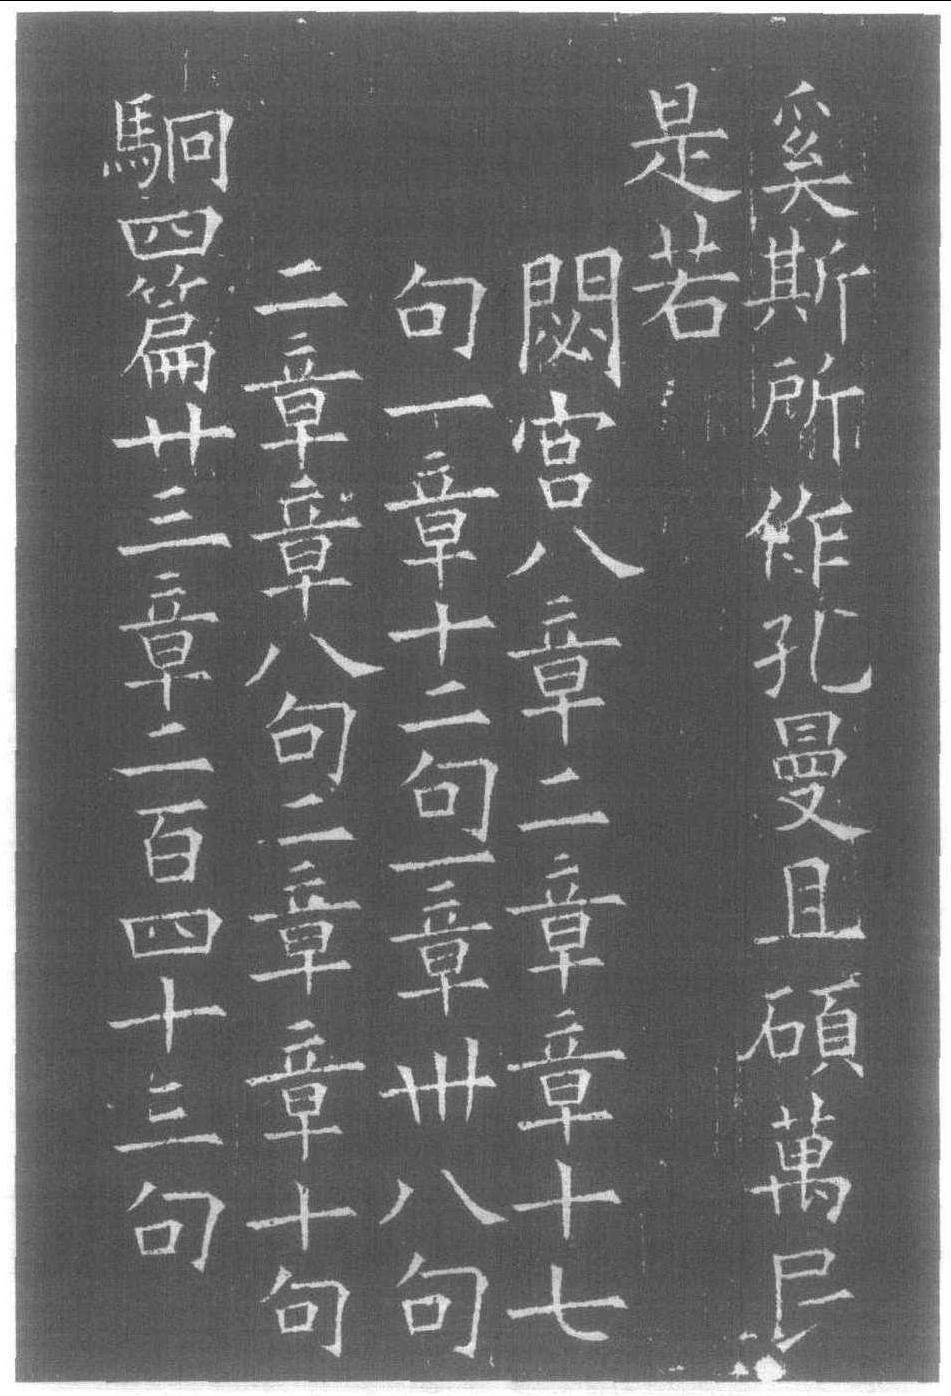 奚斯所作孔曼且碩萬民
是若
閟宮八章二章章十七
句一章十二句一章卌八句
二章章八句二章章十句
駉四篇廿三章二百四十三句